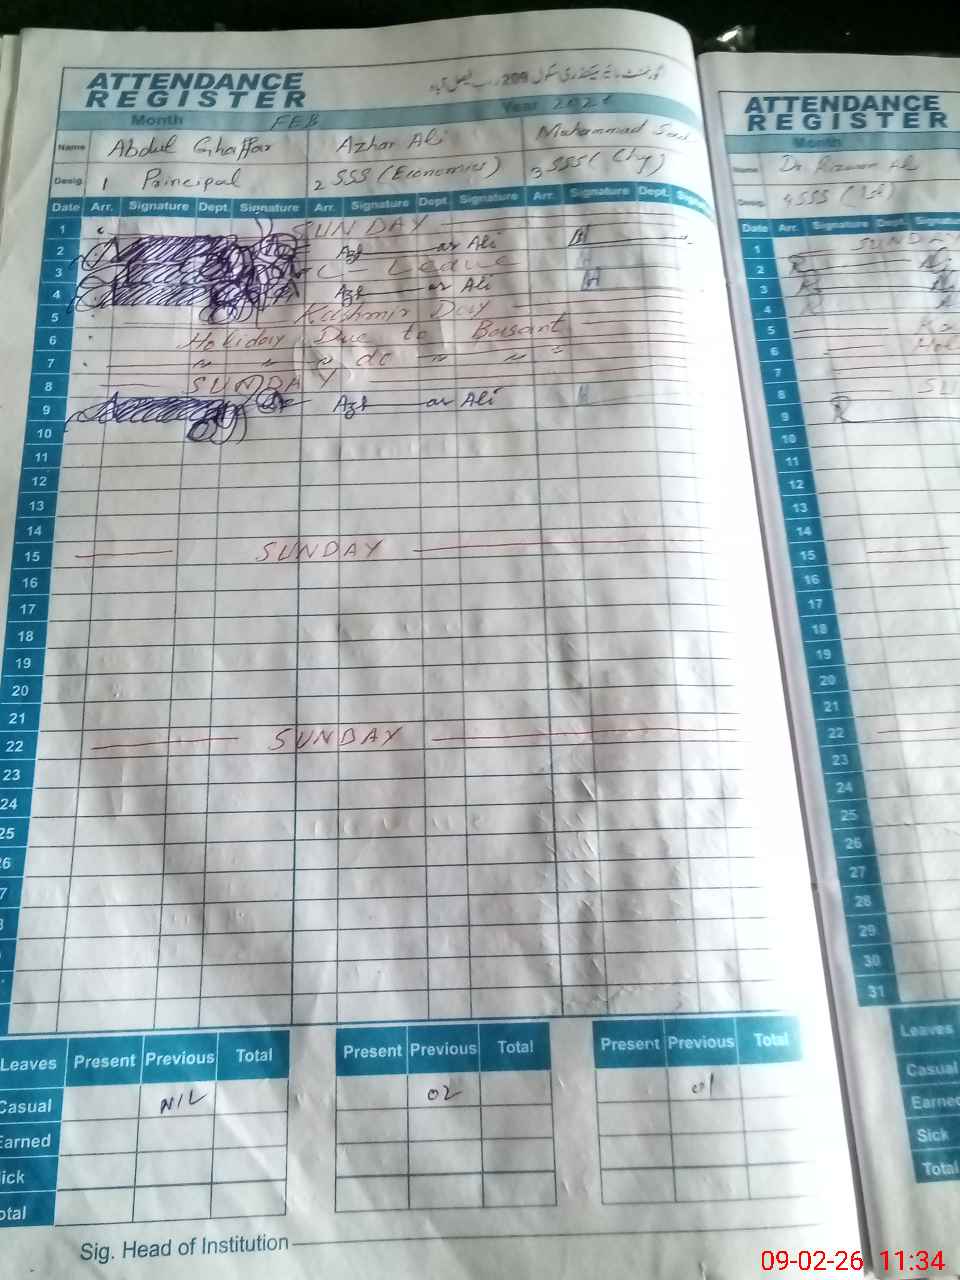 ATTENDANCE
REGISTER
گورنمنٹ ہائیر سیکنڈری سکول 209 ر۔ب فیصل آباد
Month FEB Year 2026
Name Abdul Ghaffar Azhar Ali Muhammad
Desig. 1 Principal 2 SSS (Economics) 3 SSS (
Date Arr. Signature Dept. Signature Arr. Signature Dept. Signature Arr. Signature Dept.
1 SUNDAY
2 Azh ar Ali
3 C- Leave
4 Azh ar Ali
5 Kashmir Day
6 Holiday Due to Basant
7 " " " do " " "
8 SUNDAY
9 Azh ar Ali
10
11
12
13
14
15 SUNDAY
16
17
18
19
20
21
22 SUNDAY
23
24
25
6
7
Leaves Present Previous Total Present Previous Total Present Previous Total
Casual NIL 02 01
Earned
ick
otal
Sig. Head of Institution
ATTENDANCE
REGISTER
Month
Name Dr Rizwan Ali
Desig. 4 SSS (
Date Arr. Signature Dept. Signatu
1 SUNDAY
2 R
3
4 R
5 Ka
6 Hol
7
8 SU
9 R
10
11
12
13
14
15
16
17
18
19
20
21
22
23
24
25
26
27
28
29
30
31
Leaves
Casual
Earne
Sick
Total
09-02-26 11:34